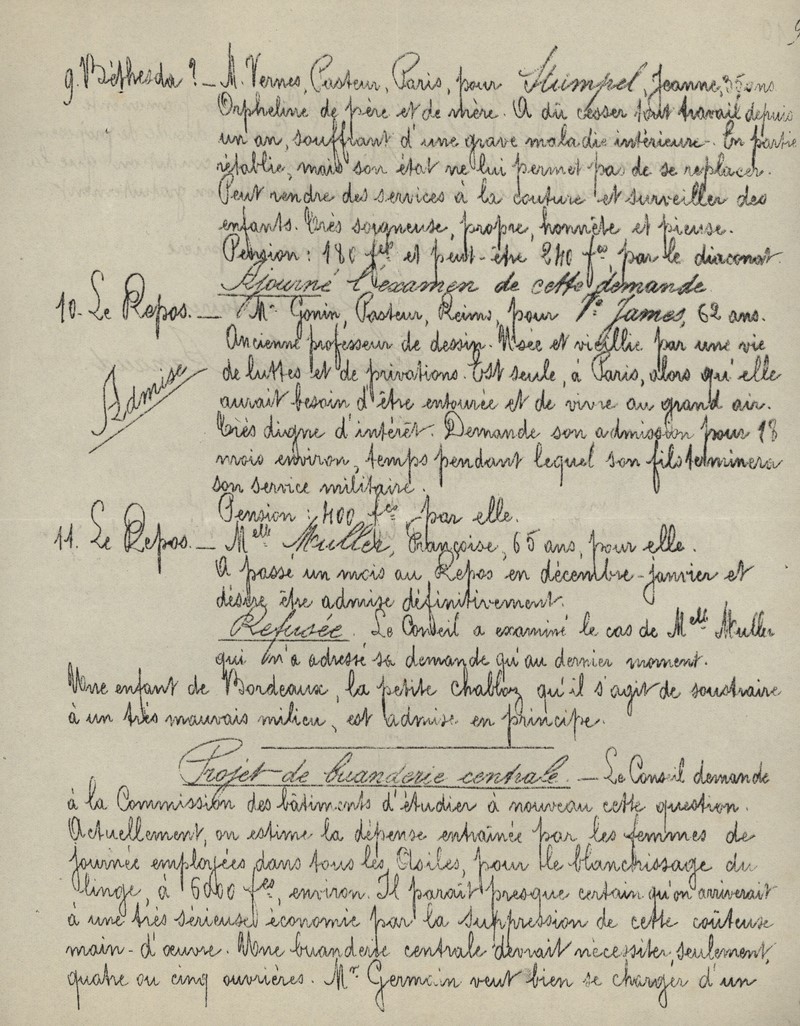 9. Béthesda ? — M. Vernes, Pasteur, Paris, pour Stumpel, Jeanne, 35 ans
Orpheline de père et de mère. A dû cesser tout travail depuis
un an, souffrant d'une grave maladie intérieure. En partie
rétablie, mais son état ne lui permet pas de se replacer.
Peut rendre des services à la couture et surveiller des
enfants. Très soigneuse, propre, honnête et pieuse.
Pension : 180 fcs et peut-être 240 fcs par le diaconat.
Ajourné l'examen de cette demande
10. Le Repos. — Mr Gonin, Pasteur, Reims, pour Ve James, 62 ans.
Ancienne professeur de dessin. Usée et vieillie par une vie
de luttes et de privations. Est seule, à Paris, alors qu'elle
aurait besoin d'être entourée et de vivre au grand air.
Admise
Très digne d'intérêt. Demande son admission pour 18
mois environ, temps pendant lequel son fils terminera
son service militaire.
Pension : 400 fcs, par elle.
11. Le Repos. — Melle Muller, Françoise, 65 ans, pour elle.
A passé un mois au Repos en décembre-janvier et
désire être admise définitivement.
Refusée. Le Conseil a examiné le cas de Melle Muller
qui n'a adressé sa demande qu'au dernier moment.
Une enfant de Bordeaux, la petite Chabloz qu'il s'agit de soustraire
à un très mauvais milieu, est admise en principe.
Projet de buanderie centrale. — Le Conseil demande
à la Commission des bâtiments d'étudier à nouveau cette question.
Actuellement, on estime la dépense entraînée par les femmes de
journée employées dans tous les Asiles, pour le blanchissage du
linge, à 6000 fcs, environ. Il paraît presque certain qu'on arriverait
à une très sérieuse économie par la suppression de cette coûteuse
main-d'œuvre. Une buanderie centrale devrait nécessiter, seulement,
quatre ou cinq ouvrières. Mr Germain veut bien se charger d'un